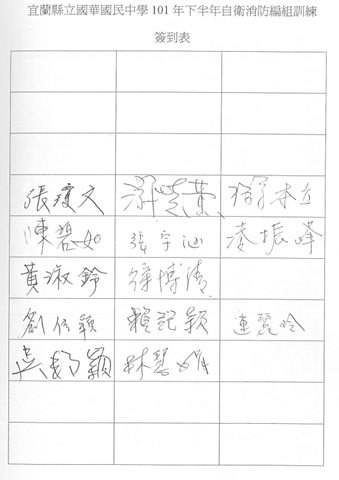 宜蘭縣立國華國民中學101年下半年自衛消防編組訓練
簽到表
張瓊文
陳碧如 張宇汕 凌振峰
黃淑鈴 徐博清
劉信穎 賴記穎 連麗玲
林慧娟